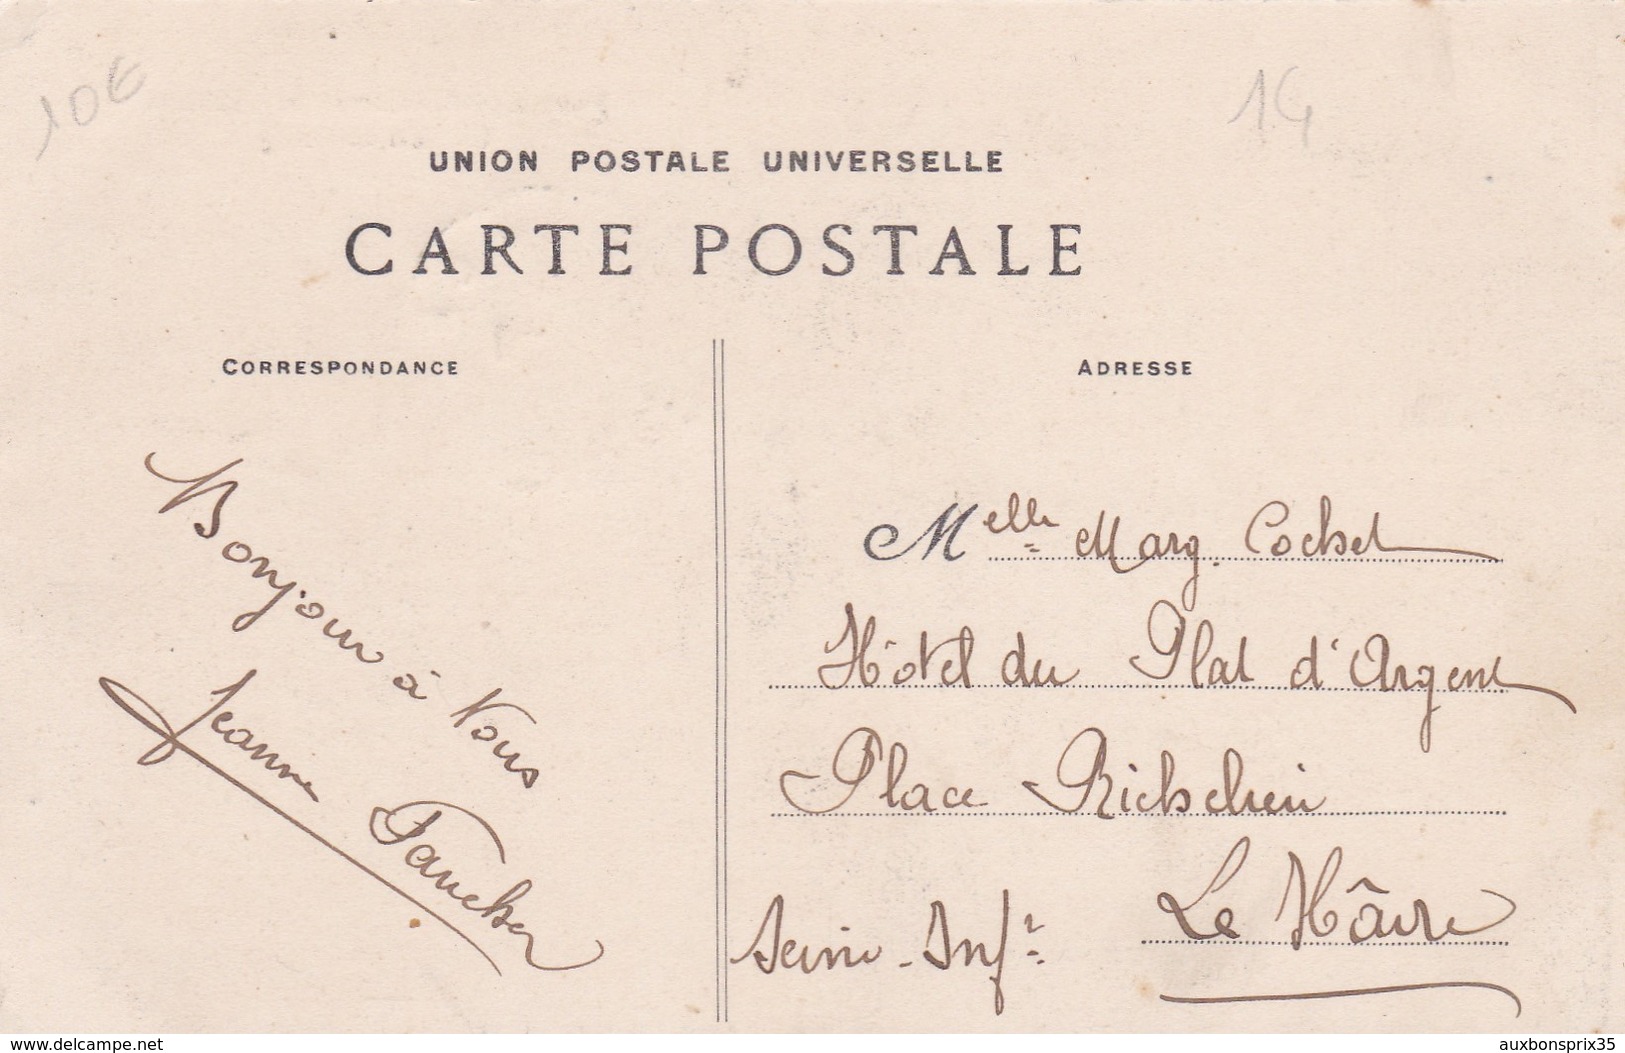 10€
14
UNION POSTALE UNIVERSELLE
CARTE POSTALE
CORRESPONDANCE
ADRESSE
Bonjour à Vous
Jeanne Faucher
Melle Marg. Cochet
Hôtel du Plat d'Argent
Place Richelieu
Le Hâvre
Seine-Infre
www.delcampe.net
auxbonsprix35